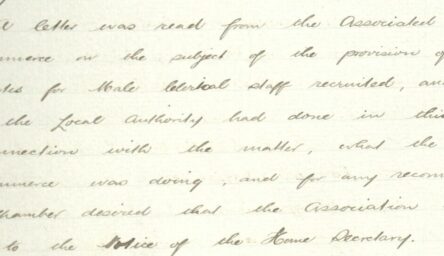 letter was read from the Associated
mmerce on the subject of the provision of
for Male Clerical staff recruited, an
the Local Authority had done in this
nnection with the matter, what the
mmerce was doing, and for any recom
hamber desired that the Association
to the Notice of the Home Secretary.